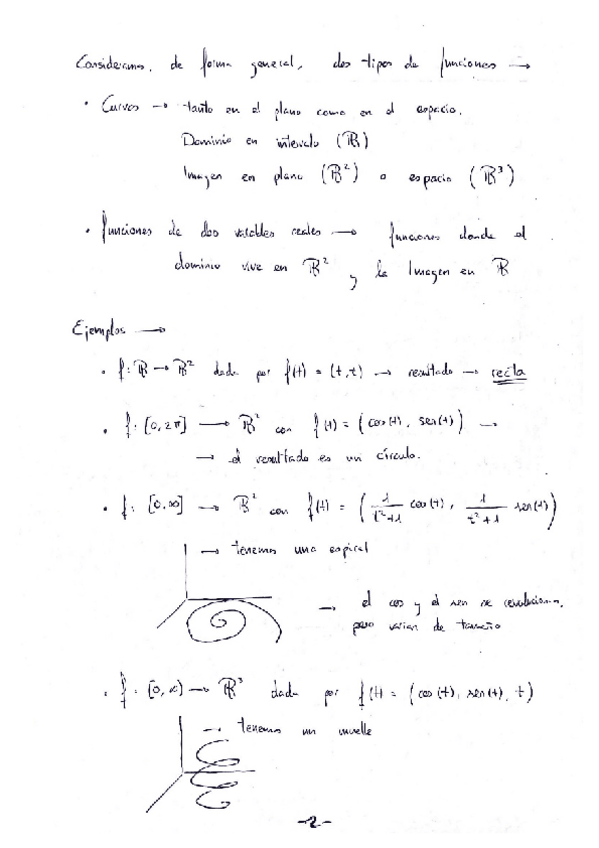 Consideramos, de forma general, dos tipos de funciones →
• Curvas → tanto en el plano como en el espacio.
Dominio en intervalo (ℝ)
Imagen en plano (ℝ²) o espacio (ℝ³)
• funciones de dos variables reales → funciones donde el
dominio vive en ℝ² y la Imagen en ℝ
Ejemplos →
• f: ℝ → ℝ² dada por f(t) = (t, t) → resultado → recta
• f: [0, 2π] → ℝ² con f(t) = (cos(t), sen(t)) →
→ el resultado es un círculo.
• f: [0, ∞] → ℝ² con f(t) = (1/(t²+1) cos(t), 1/(t²+1) sen(t))
→ tenemos una espiral
→ el cos y el sen se
pero varían de tamaño
• f: [0, ∞) → ℝ³ dada por f(t) = (cos(t), sen(t), t)
→ tenemos un muelle
-2-